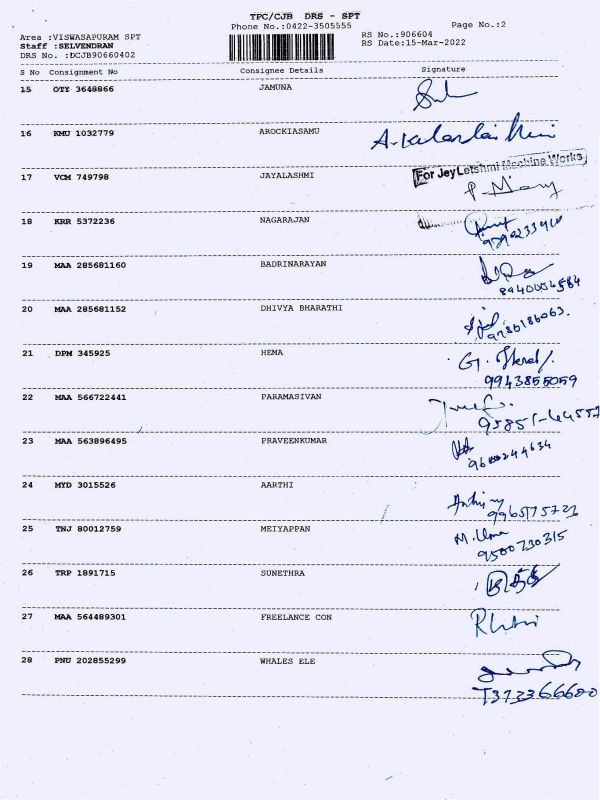 TPC/CJB DRS - SPT
Phone No.:0422-3505555 Page No.:2
Area :VISWASAPURAM SPT RS No.:906604
Staff :SELVENDRAN RS Date:15-Mar-2022
DRS No. :DCJB90660402
S No Consignment No Consignee Details Signature
15 OTY 3648866 JAMUNA
16 KMU 1032779 AROCKIASAMU
For Jey Letshmi Machine Works
17 VCM 749798 JAYALASHMI
P. Mary
18 KRR 5372236 NAGARAJAN
19 MAA 285681160 BADRINARAYAN
8940054584
20 MAA 285681152 DHIVYA BHARATHI
9786186063.
21 DPM 345925 HEMA
9943855059
22 MAA 566722441 PARAMASIVAN
23 MAA 563896495 PRAVEENKUMAR
24 MYD 3015526 AARTHI
9965775723
25 TNJ 80012759 MEIYAPPAN
M. Uma
9500730315
26 TRP 1891715 SUNETHRA
27 MAA 564489301 FREELANCE CON
28 PNU 202855299 WHALES ELE